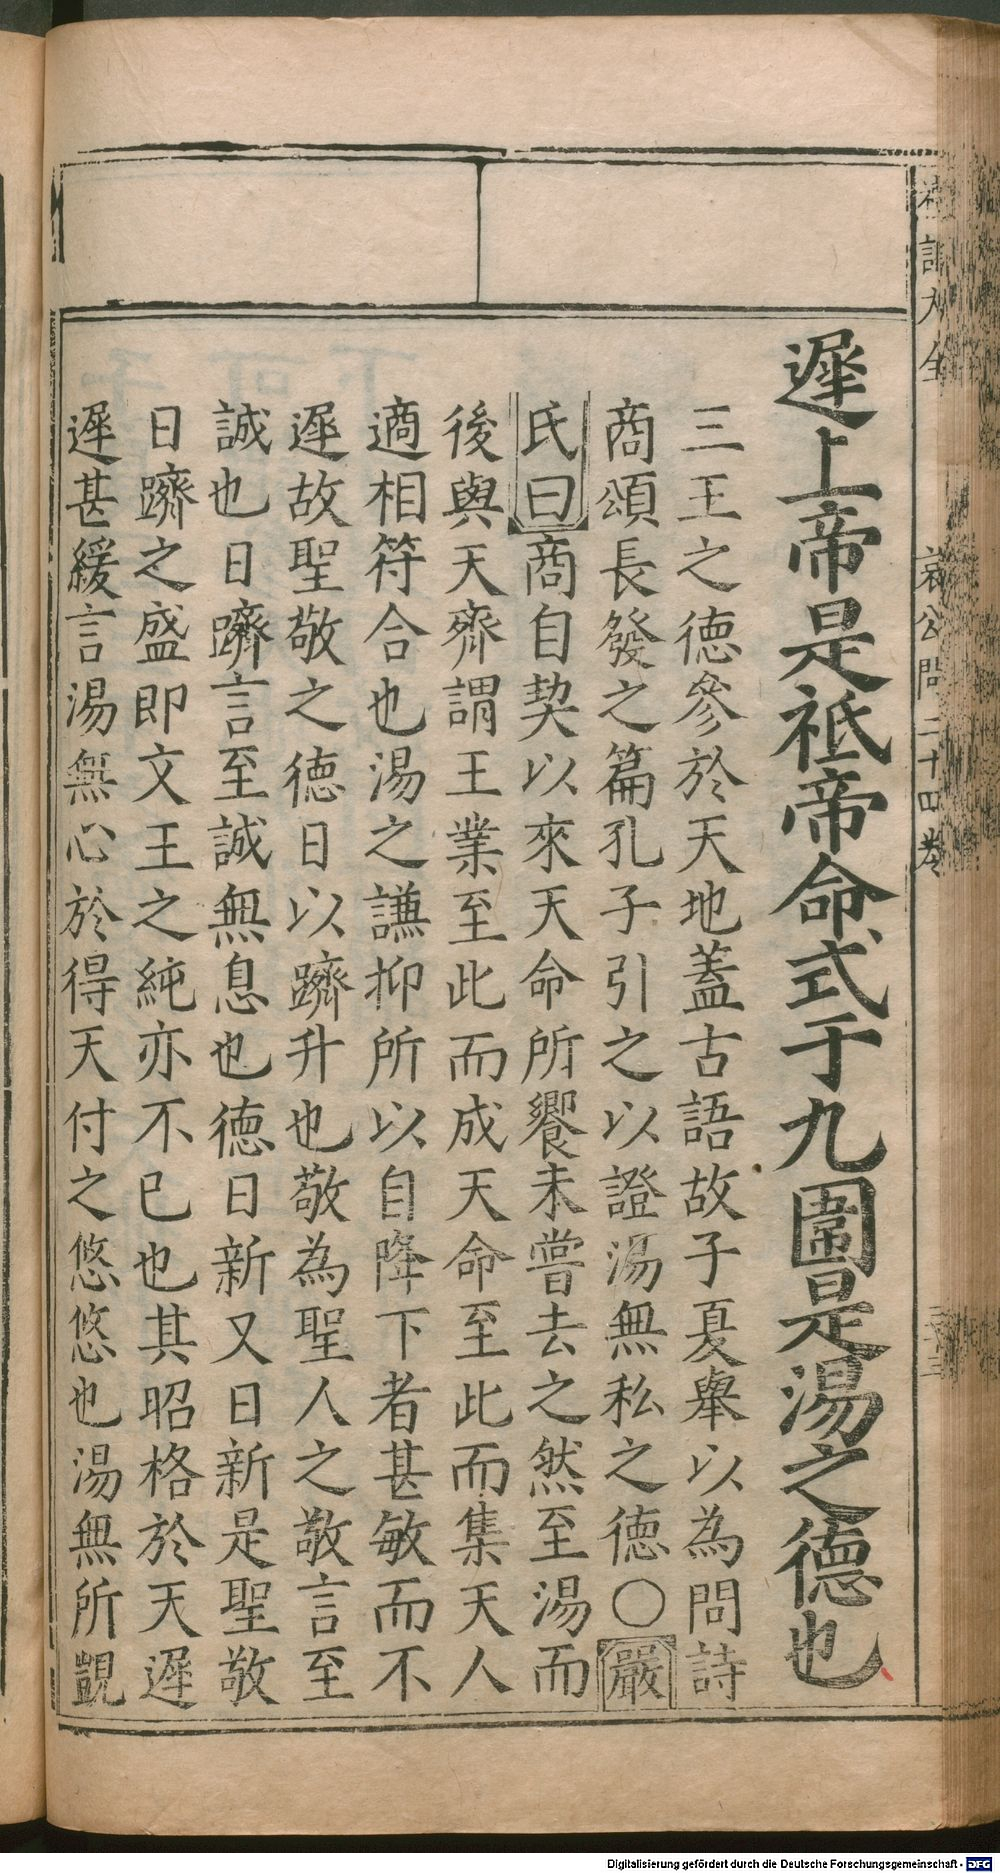 遲上帝是祗帝命式于九圍是湯之德也
三王之德參於天地蓋古語故子夏舉以為問詩
商頌長發之篇孔子引之以證湯無私之德〇嚴
氏曰商自契以來天命所饗未嘗去之然至湯而
後與天齊謂王業至此而成天命至此而集天人
適相符合也湯之謙抑所以自降下者甚敏而不
遲故聖敬之德日以躋升也敬為聖人之敬言至
誠也日躋言至誠無息也德日新又日新是聖敬
日躋之盛即文王之純亦不已也其昭格於天遲
遲甚緩言湯無心於得天付之悠悠也湯無所覬
哀公問二十四卷
Digitalisierung gefördert durch die Deutsche Forschungsgemeinschaft - DFG